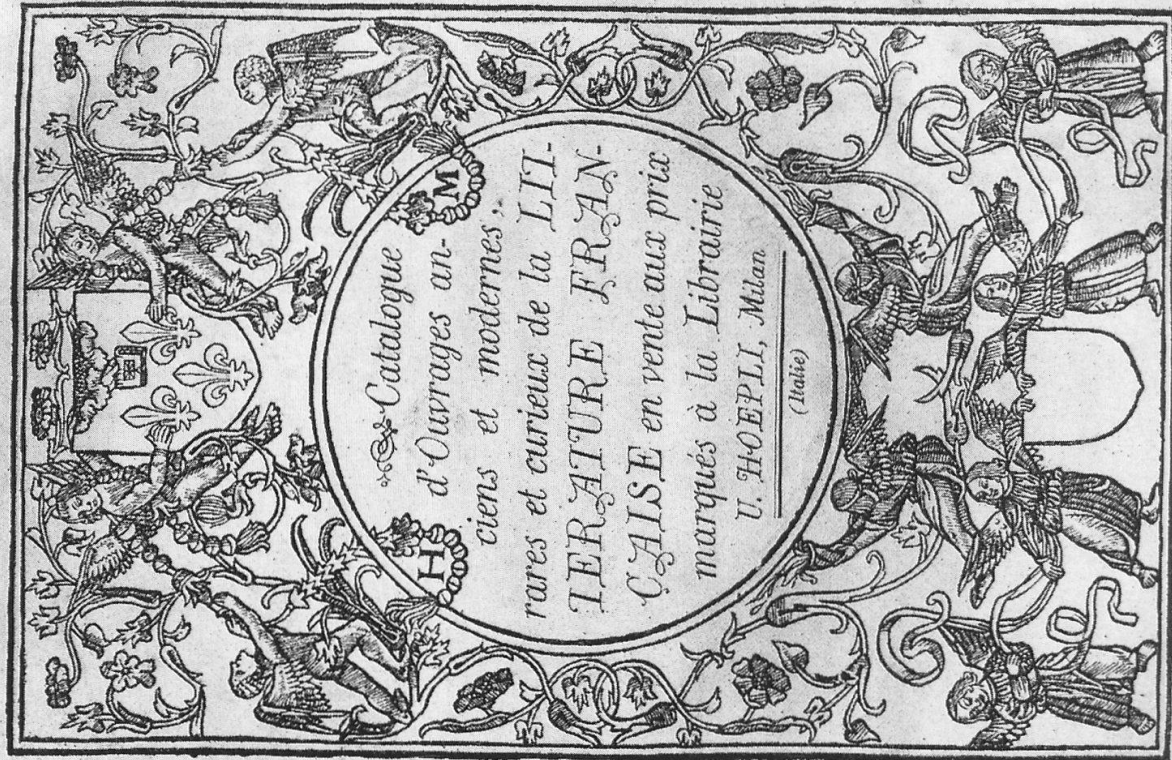 H M
Catalogue
d'Ouvrages an-
ciens et modernes,
rares et curieux de la LIT-
TERATURE FRAN-
CAISE en vente aux prix
marqués à la Librairie
U. HOEPLI, Milan
(Italie)